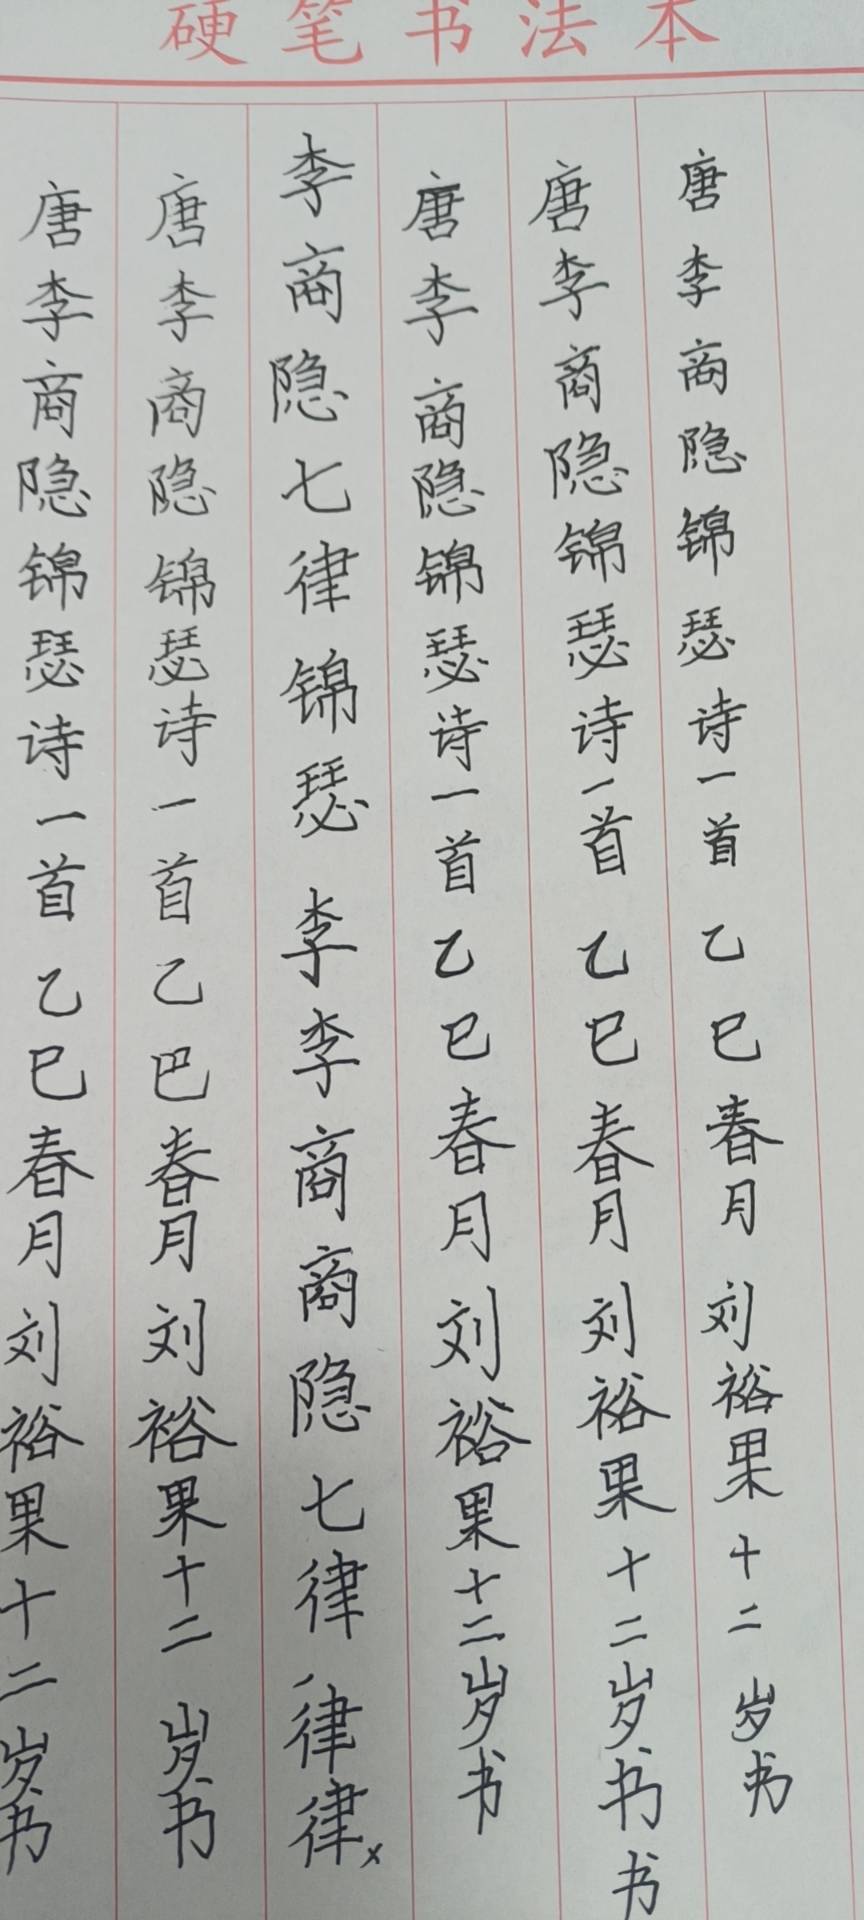 硬笔书法本
唐李商隐锦瑟诗一首乙巳春月刘裕果十二岁书
唐李商隐锦瑟诗一首乙巳春月刘裕果十二岁书书
唐李商隐锦瑟诗一首乙巳春月刘裕果十二岁书
李商隐七律锦瑟李李商商隐七律律律x
唐李商隐锦瑟诗一首乙巴春月刘裕果十二岁书
唐李商隐锦瑟诗一首乙巳春月刘裕果十二岁书